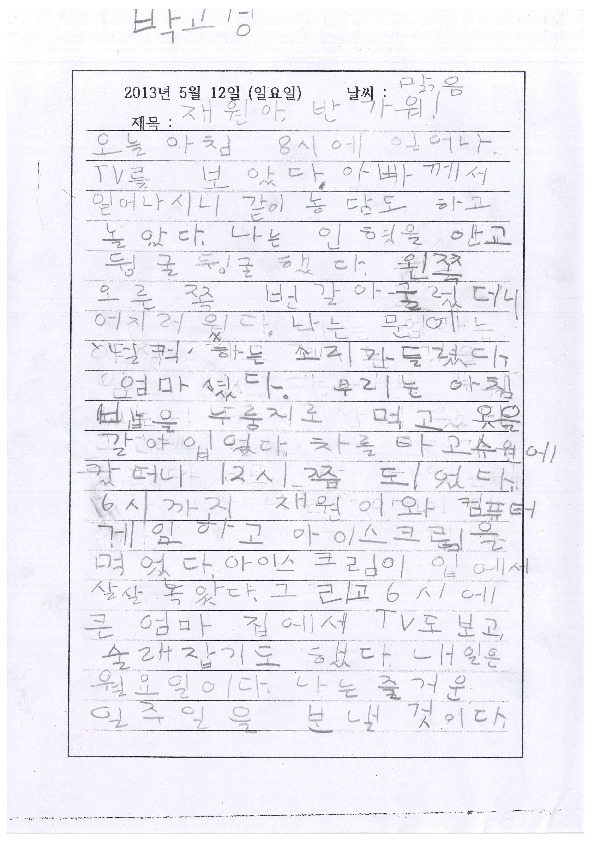 박고영
2013년 5월 12일 (일요일) 날씨 : 맑음
제목 : 재원아, 반가워!
오늘 아침 8시에 일어나.
TV를 보았다. 아빠께서
일어나시니 같이 농담도 하고
놀았다. 나는 인형을 안고
뒹굴뒹굴 했다. 왼쪽
오른쪽 번갈아 굴렀더니
어지러웠다. 나는
하는 소리가 들렸다.
엄마였다. 우리는 아침
밥을 누룽지로 먹고 옷을
갈아입었다. 차를 타고 수원에
갔더니 12시쯤 되었다.
6시까지 재원이와 컴퓨터
게임하고 아이스크림을
먹었다. 아이스크림이 입에서
살살 녹았다. 그리고 6시에
큰엄마 집에서 TV도 보고,
술래잡기도 했다. 내일은
월요일이다. 나는 즐거운
일주일을 보낼 것이다.